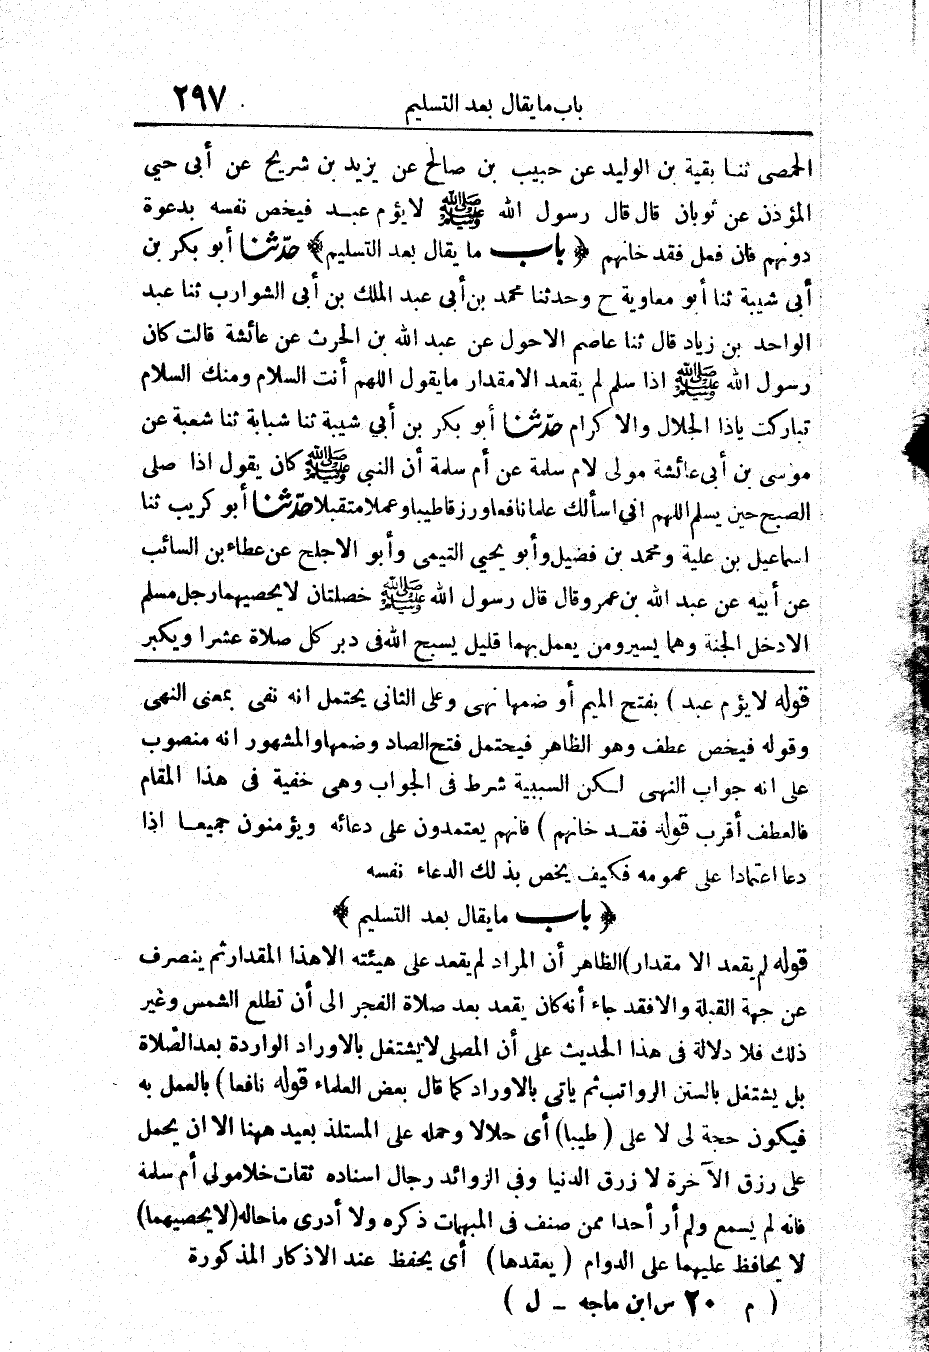 باب ما يقال بعد التسليم ٢٩٧
الحمصى ثنا بقية بن الوليد عن حبيب بن صالح عن يزيد بن شريح عن أبى حيي
المؤذن عن ثوبان قال قال رسول الله ﷺ لا يؤم عبد فيخص نفسه بدعوة
دونهم فان فعل فقد خانهم ﴿ باب ما يقال بعد التسليم﴾ حدّثنا أبو بكر بن
أبى شيبة ثنا أبو معاوية ح وحدثنا محمد بن أبى عبد الملك بن أبى الشوارب ثنا عبد
الواحد بن زياد قال ثنا عاصم الاحول عن عبد الله بن الحرث عن عائشة قالت كان
رسول الله ﷺ اذا سلم لم يقعد الا مقدار ما يقول اللهم أنت السلام ومنك السلام
تباركت ياذا الجلال والاكرام حدّثنا أبو بكر بن أبي شيبة ثنا شبابة ثنا شعبة عن
موسى بن أبى عائشة مولى لام سلمة عن أم سلمة أن النبي ﷺ كان يقول اذا صلى
الصبح حين يسلم اللهم اني اسألك علما نافعا ورزقا طيبا وعملا متقبلا حدّثنا أبو كريب ثنا
اسماعيل بن علية ومحمد بن فضيل وأبو يحيي التيمى وأبو الاجلح عن عطاء بن السائب
عن أبيه عن عبد الله بن عمرو قال قال رسول الله ﷺ خصلتان لا يحصيهما رجل مسلم
الا دخل الجنة وهما يسير ومن يعمل بهما قليل يسبح الله فى دبر كل صلاة عشرا ويكبر
قوله لا يؤم عبد ) بفتح الميم أو ضمها نهى وعلى الثانى يحتمل انه نفى بمعنى النهى
وقوله فيخص عطف وهو الظاهر فيحتمل فتح الصاد وضمها والمشهور انه منصوب
على انه جواب النهى لكن السببية شرط فى الجواب وهى خفية فى هذا المقام
فالعطف أقرب قوله فقد خانهم ) فانهم يعتمدون على دعائه ويؤمنون جميعا اذا
دعا اعتمادا على عمومه فكيف يخص بذلك الدعاء نفسه
﴿ باب ما يقال بعد التسليم ﴾
قوله لم يقعد الا مقدار) الظاهر أن المراد لم يقعد على هيئته الا هذا المقدار ثم ينصرف
عن جهة القبلة والا فقد جاء أنه كان يقعد بعد صلاة الفجر الى أن تطلع الشمس وغير
ذلك فلا دلالة فى هذا الحديث على أن المصلى لا يشتغل بالاوراد الواردة بعد الصّلاة
بل يشتغل بالسنن الرواتب ثم ياتى بالاوراد كما قال بعض العلماء قوله نافعا ) بالعمل به
فيكون حجة لى لا على ( طيبا) أى حلالا وحمله على المستلذ بعيد ههنا الا ان يحمل
على رزق الآخرة لا زرق الدنيا وفى الزوائد رجال اسناده ثقات خلا مولى أم سلمة
فانه لم يسمع ولم أر أحدا ممن صنف فى المبهمات ذكره ولا أدرى ما حاله (لا يحصيهما)
لا يحافظ عليهما على الدوام ( يعقدها ) أى يحفظ عند الاذكار المذكورة
( م ٢٠ س ابن ماجه - ل )